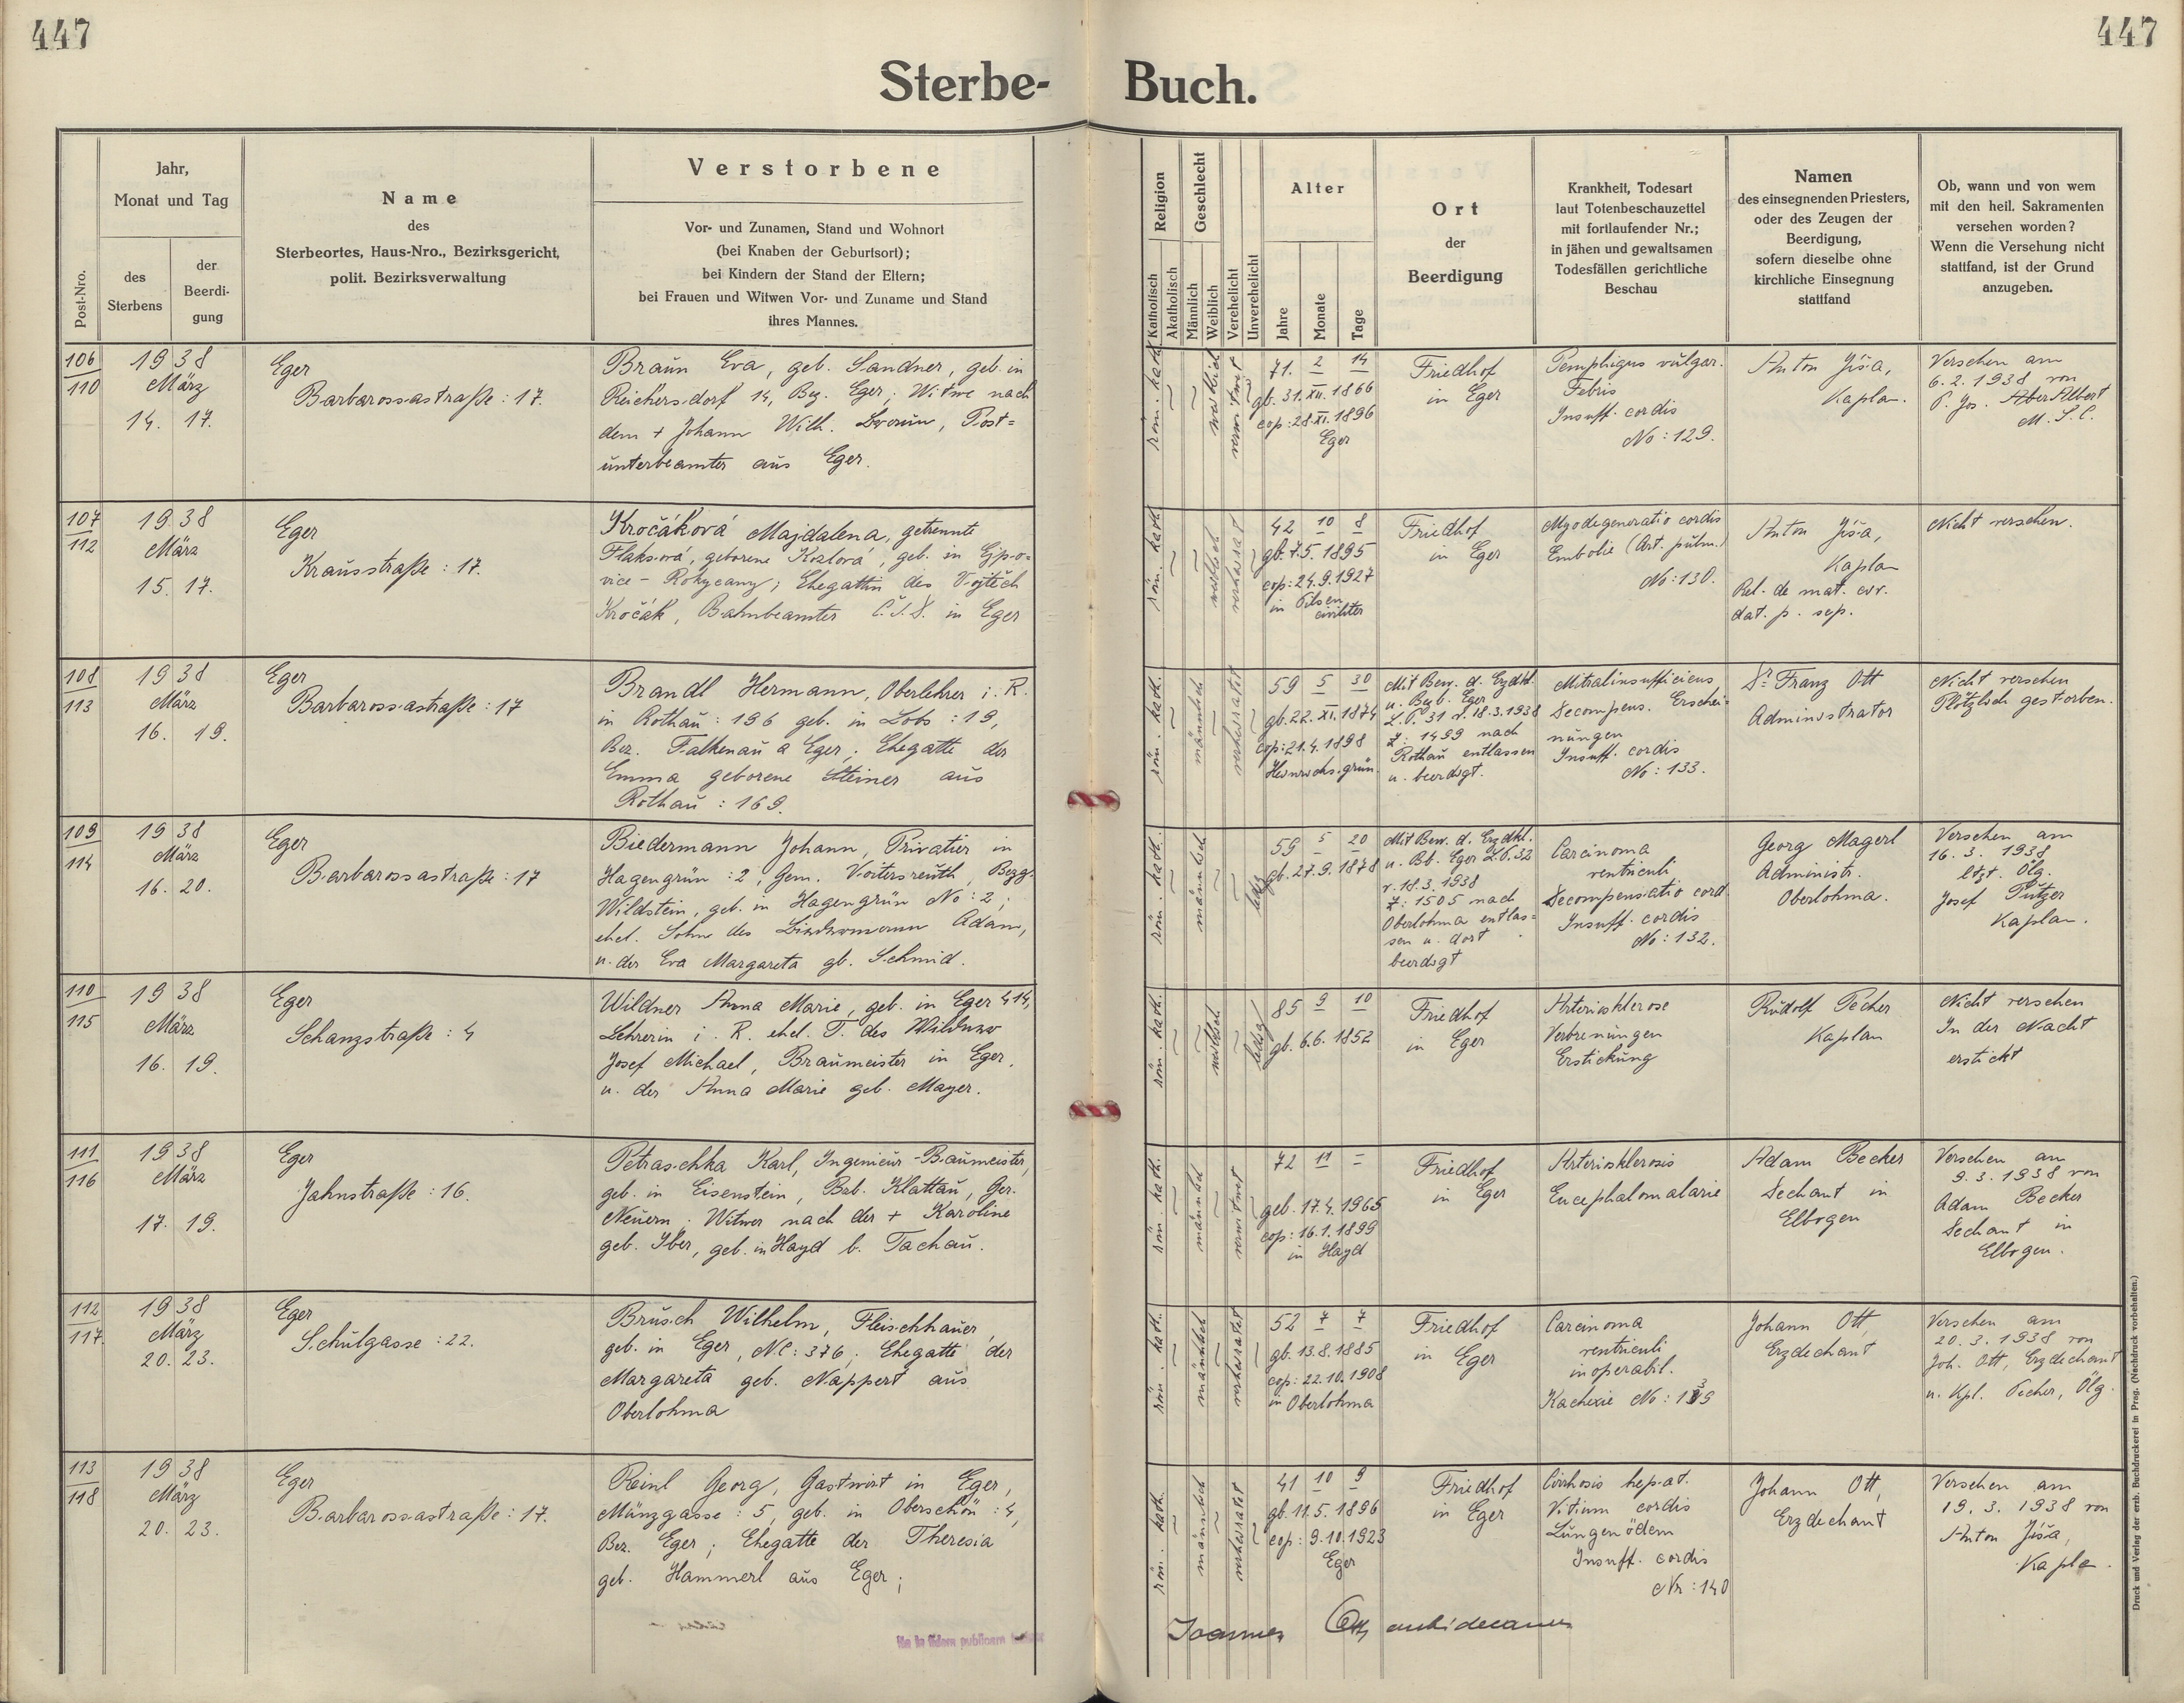 447
447
Sterbe-
Buch.
Post-Nro.
Jahr,
Monat und Tag
des
Sterbens
der
Beerdi-
gung
Name
des
Sterbeortes, Haus-Nro., Bezirksgericht,
polit. Bezirksverwaltung
Verstorbene
Vor- und Zunamen, Stand und Wohnort
(bei Knaben der Geburtsort);
bei Kindern der Stand der Eltern;
bei Frauen und Witwen Vor- und Zuname und Stand
ihres Mannes.
Religion
Katholisch
Akatholisch
Geschlecht
Männlich
Weiblich
Verehelicht
Unverehelicht
Alter
Jahre
Monate
Tage
Ort
der
Beerdigung
Krankheit, Todesart
laut Totenbeschauzettel
mit fortlaufender Nr.;
in jähen und gewaltsamen
Todesfällen gerichtliche
Beschau
Namen
des einsegnenden Priesters,
oder des Zeugen der
Beerdigung,
sofern dieselbe ohne
kirchliche Einsegnung
stattfand
Ob, wann und von wem
mit den heil. Sakramenten
versehen worden?
Wenn die Versehung nicht
stattfand, ist der Grund
anzugeben.
106
110
1938
März
14. 17.
Eger
Barbarossastraße : 17.
Braun Eva, geb. Sandner, geb. in
Reichersdorf 14, Bez. Eger; Witwe nach
dem + Johann Wilh. Braun, Post=
unterbeamter aus Eger.
röm. kath.
weiblich
verwitwet
71. 2 14
gb. 31. XII. 1866
cop: 28. XI. 1896
Eger
Friedhof
in Eger
Pemphigus vulgar.
Febris
Insuff. cordis
No: 129.
Anton Jiša,
Kaplan.
Versehen am
6.2.1938 von
P. Jos. Albert
M.S.C.
107
112
1938
März
15. 17.
Eger
Krausstraße : 17.
Kročáková Majdalena, getrennte
Flaksová, geborene Kozlová, geb. in Ejpo=
vice - Rokycany; Ehegattin des Vojtěch
Kročák, Bahnbeamter Č.S.D. in Eger
röm. kath.
weiblich
verheiratet
42 10 8
gb. 7.5.1895
cop: 24.9.1927
in Pilsen
civiliter
Friedhof
in Eger
Myodegeneratio cordis
Embolie (Art. pulm.)
No: 130.
Anton Jiša,
Kaplan
Rel. de mat. civ.
dat. p. sep.
Nicht versehen.
108
113
1938
März
16. 19.
Eger
Barbarossastraße : 17
Brandl Hermann, Oberlehrer i. R.
in Rothau : 196 geb. in Lobs : 19,
Bez. Falkenau a Eger. Ehegatte der
Emma geborene Steiner aus
Rothau : 169.
röm. kath.
männlich
verheiratet
59 5 30
gb. 22. XI. 1874
cop: 21.4.1898
Heinrichsgrün.
Mit Bew. d. Erzdkl.
u. Bezb. Eger
L.P. 31 v. 18.3.1938
Z: 1499 nach
Rothau entlassen
u. beerdigt.
Mitralinsufficiens
Decompens. Erschei=
nungen
Insuff. cordis
No: 133.
Dr. Franz Ott
Administrator
Nicht versehen
Plötzlich gestorben.
109
114
1938
März
16. 20.
Eger
Barbarossastraße : 17
Biedermann Johann, Privatier in
Hagengrün : 2, Gem. Voitersreuth, Bezg.
Wildstein, geb. in Hagengrün No: 2;
ehel. Sohn des Biedermann Adam,
u. der Eva Margareta gb. Schmid.
röm. kath.
männlich
ledig
59 5 20
gb. 27.9.1878
Mit Bew. d. Erzdkl.
u. Bb. Eger L.P. 32
v. 18.3.1938
Z: 1505 nach
Oberlohma entlas=
sen u. dort
beerdigt
Carcinoma
ventriculi
Decompensatio cord
Insuff. cordis
No: 132.
Georg Magerl
Administr.
Oberlohma.
Versehen am
16.3.1938
letzt. Ölg.
Josef Pützer
Kaplan.
110
115
1938
März
16. 19.
Eger
Schanzstraße : 4
Wildner Anna Marie, geb. in Eger 414,
Lehrerin i. R. ehel. T. des Wildner
Josef Michael, Braumeister in Eger.
u. der Anna Marie geb. Mayer.
röm. kath.
weiblich
ledig
85 9 10
gb. 6.6.1852
Friedhof
in Eger
Arteriosklerose
Verbrenungen
Erstickung
Rudolf Pecher
Kaplan
Nicht versehen
In der Nacht
erstickt
111
116
1938
März
17. 19.
Eger
Jahnstraße : 16.
Petraschka Karl, Ingenieur-Baumeister,
geb. in Eisenstein, Bzb. Klattau, Ger.
Neuern; Witwer nach der + Karoline
geb. Iber, geb. in Hayd b. Tachau.
röm. kath.
männlich
verwitwet
72 11 -
geb. 17.4.1965
cop: 16.1.1899
in Hayd
Friedhof
in Eger
Arteriosklerosis
Encephalomalarie
Adam Becker
Dechant in
Elbogen
Versehen am
9.3.1938 von
Adam Becker
Dechant in
Elbogen.
112
117
1938
März
20. 23.
Eger
Schulgasse : 22.
Brusch Wilhelm, Fleischhauer,
geb. in Eger, NC: 376; Ehegatte der
Margareta geb. Nappert aus
Oberlohma
röm. kath.
männlich
verheiratet
52 7 7
gb. 13.8.1885
cop: 22.10.1908
in Oberlohma
Friedhof
in Eger
Carcinoma
ventriculi
inoperabil.
Kachexie No: 139
Johann Ott,
Erzdechant
Versehen am
20.3.1938 von
Joh. Ott, Erzdechant
u. Kpl. Pecher, Ölg.
113
118
1938
März
20. 23.
Eger
Barbarossastraße : 17.
Reinl Georg, Gastwirt in Eger,
Münzgasse : 5, geb. in Oberschön : 4,
Bez. Eger; Ehegatte der Theresia
geb. Hammerl aus Eger;
röm. kath.
männlich
verheiratet
41 10 9
gb. 11.5.1896
cop: 9.10.1923
Eger
Friedhof
in Eger
Cirrhosis hepat.
Vitium cordis
Lungenödem
Insuff. cordis
Nr: 140
Johann Ott,
Erzdechant
Versehen am
19.3.1938 von
Anton Jiša,
Kapla
Joannes Ott archidecanus
in fidem publicam
Druck und Verlag der ernb. Buchdruckerei in Prag. (Nachdruck vorbehalten.)